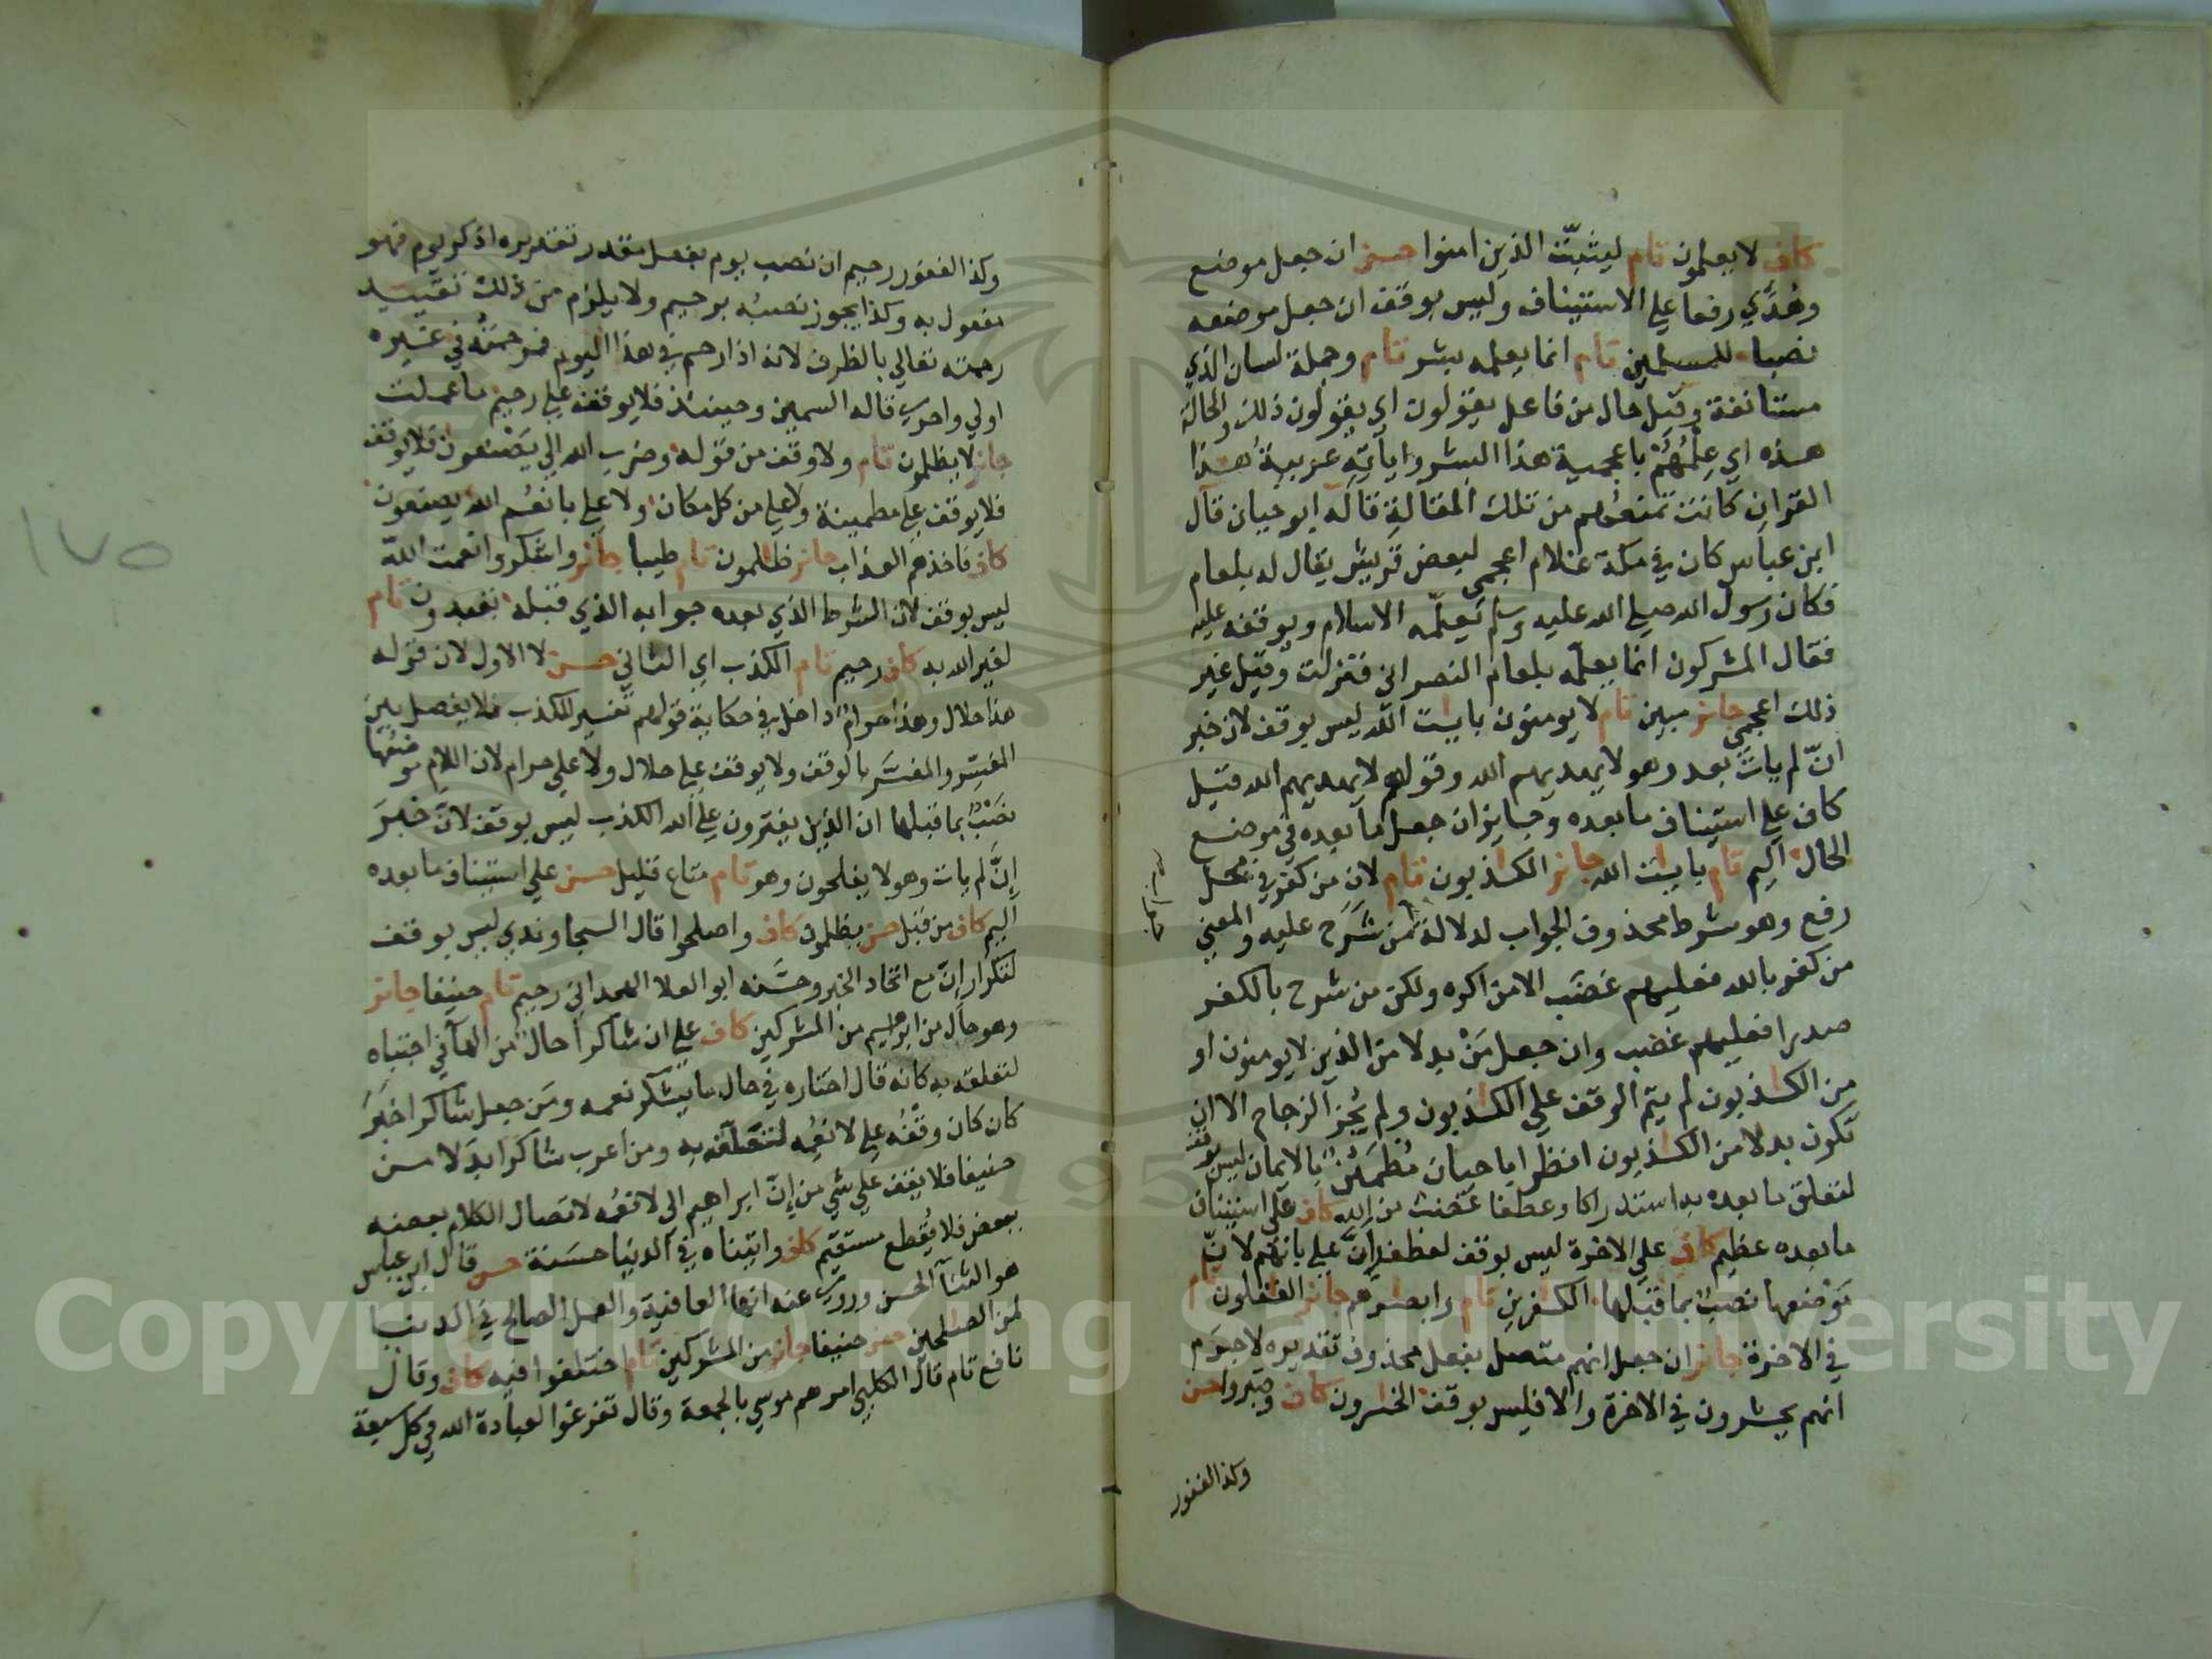 كاف لا يعلمون تام ليثبت الذين امنوا حسن ان جعل موضع
وهدي رفعا علي الاستيناف وليس بوقف ان جعل موضعه
نصبا للمسلمين تام انما يعلمه بشر تام وجملة لسان الذي
مستانفة وقيل حال من فاعل يقولون اي يقولون ذلك والحالة
هذه اي علمهم باعجمية هذا البشر واياته عربية هذا
القران كانت تمنعهم من تلك المقالة قاله ابو حيان قال
ابن عباس كان في مكة غلام اعجمي لبعض قريش يقال له بلعام
فكان رسول الله صلي الله عليه وسلم يعلمه الاسلام ويوقفه عليه
فقال المشركون انما يعلمه بلعام النصراني فنزلت وقيل غير
ذلك اعجمي جائز مبين تام لا يومنون بايات الله ليس بوقف لان خبر
ان لم يات بعد وهو لا يهديهم الله وقوله لا يهديهم الله قيل
كاف علي استيناف ما بعده وجايز ان جعل ما بعده في موضع
الحال اليم تام بايات الله جائز الكذبون تام لان من كفر في محل
رفع وهو شرط محذوف الجواب لدلالة من شرح عليه والمعني
من كفر بالله فعليهم غضب الا من اكره ولكن من شرح بالكفر
صدرا فعليهم غضب وان جعل من بدلا من الذين لا يومنون او
من الكذبون لم يتم الوقف علي الكذبون ولم يجز الزجاج الا ان
تكون بدلا من الكذبون انظر ابا حيان مطمئن بالايمان ليس بوقف
لتعلق ما بعده به استدراكا وعطفا غضب من الله كاف علي استيناف
ما بعده عظيم كاف علي الاخرة ليس بوقف لعطف ان علي بانهم لان
موضعها نصب بما قبلها الكفرين تام وابصرهم جائز الغفلون تام
في الاخرة جائز ان جعل انهم متصل بفعل محذوف تقديره لا جرم
انهم يحشرون في الاخرة والا فليس بوقف الخسرون كاف وصبروا حسن
وكذا الغفور
وكذا الغفور رحيم ان نصب يوم بفعل مقدر تقديره اذكر يوم فهو
مفعول به وكذا يجوز نصبه برحيم ولا يلزم من ذلك تقييد
رحمته تعالي بالظرف لانه اذا رحم في هذا اليوم فرحمته في غيره
اولي واحري قاله السمين وحينئذ فلا يوقف علي رحيم ما عملت
جائز لا يظلمون تام ولا وقف من قوله وضرب الله الي يصنعون فلا يوقف
فلا يوقف علي مطمينة ولا علي من كل مكان ولا علي بانعم الله يصنعون
كاف فاخذهم العذاب جائز ظلمون تام طيبا جائز واشكروا نعمت الله
ليس بوقف لان الشرط الذي بعده جوابه الذي قبله تعبدون تام
لغير الله به كاف رحيم تام الكذب اي الثاني حسن لا الاول لان قوله
هذا حلال وهذا حرام داخل في حكاية قولهم تفسير للكذب فلا يفصل بين
المفسِر والمفسَر بالوقف ولا يوقف علي حلال ولا علي حرام لان اللام موضعها
نصب بما قبلها ان الذين يفترون علي الله الكذب ليس بوقف لان خبر
ان لم يات وهو لا يفلحون وهو تام متاع قليل حسن علي استيناف ما بعده
اليم كاف من قبل حسن يظلمون كاف واصلحوا قال السجاوندي ليس بوقف
لتكرار ان مع اتحاد الخبر وحسنه ابو العلا الهمداني رحيم تام حنيفا جائز
وهو حال من ابرهيم من المشركين كاف علي ان شاكرا حال من الها في اجتباه
لتعلقه به كانه قال اختاره في حال ما يشكر نعمه ومن جعل شاكرا خبر
كان كان وقفه علي لانعمه لتعلقه به ومن اعرب شاكرا بدلا من
حنيفا فلا يقف علي شي من ان ابراهيم الي لانعمه لاتصال الكلام بعضه
ببعض فلا يقطع مستقيم كاف واتيناه في الدنيا حسنة حسن قال ابن عباس
هو الثنا الحسن وروي عنه انها العافية والعمل الصالح في الدنيا
لمن الصلحين حسن حنيفا جائز من المشركين تام اختلفوا فيه كاف وقال
نافع تام قال الكلبي امرهم موسي بالجمعة وقال تفرغوا لعبادة الله في كل سبعة
١٧٥
Copyright © King Saud University
195